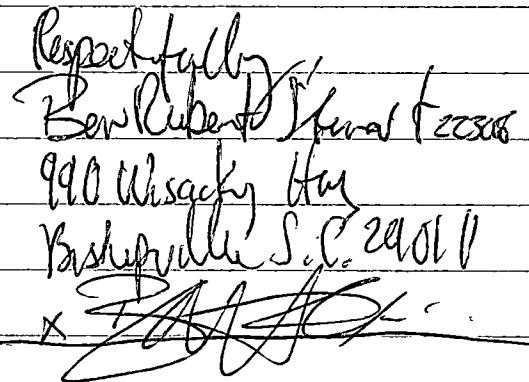 Respectfully,
Ben Robert Stewart
990 Wisacky Hwy
Bishopville S.C. 29010
X